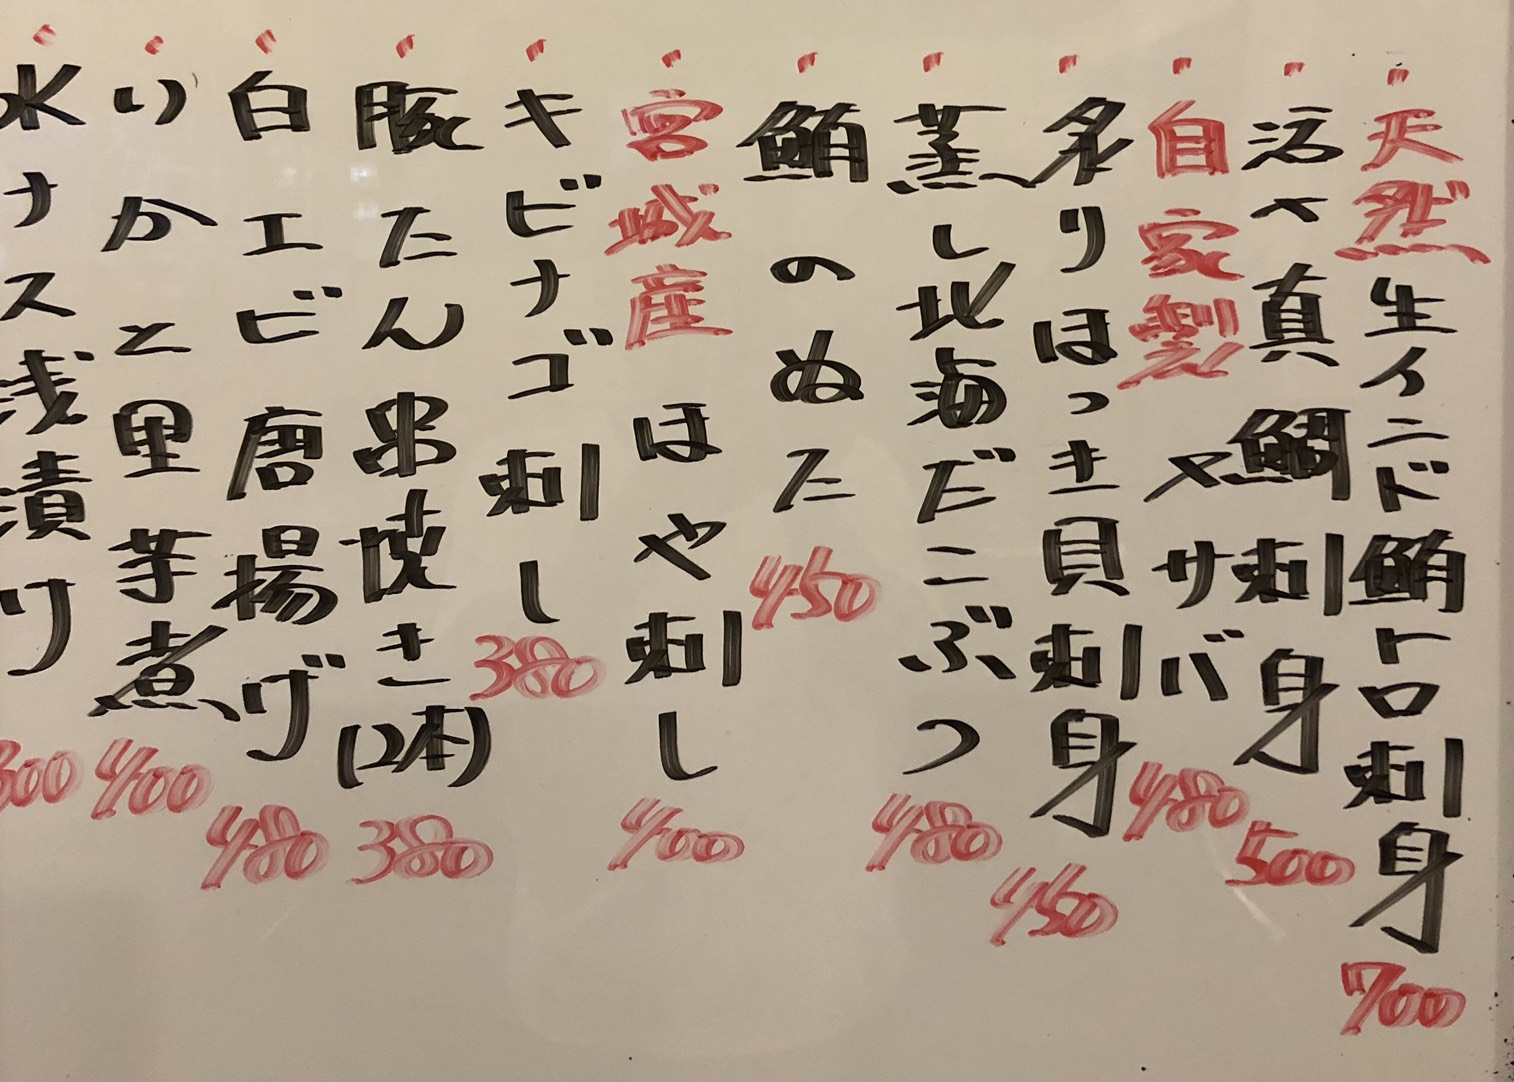 天然生インド鮪トロ刺身 700
活〆真鯛刺身 500
自家製〆サバ 480
炙りほっき貝刺身 450
蒸し北海だこぶつ 480
鮪のぬた 450
宮城産ほや刺し 400
キビナゴ刺し 380
豚たん串焼き(2本) 380
白エビ唐揚げ 480
いかと里芋煮 400
水ナス浅漬け 300